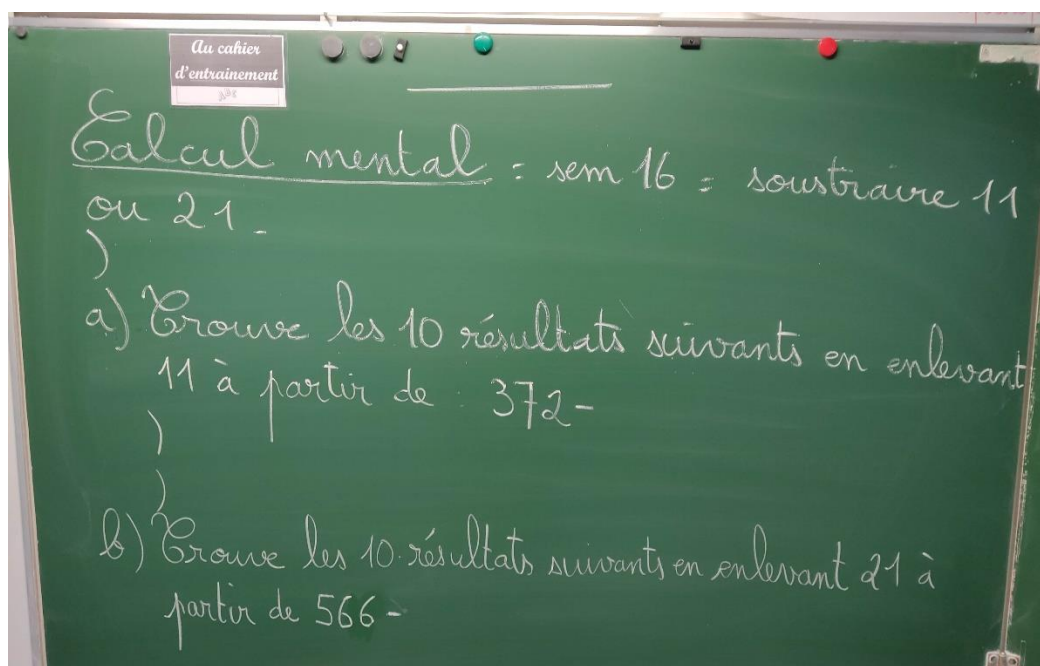 Au cahier
d'entrainement
Calcul mental : sem 16 : soustraire 11
ou 21_
)
a) Trouve les 10 résultats suivants en enlevant
11 à partir de : 372-
)
)
b) Trouve les 10 résultats suivants en enlevant 21 à
partir de 566-